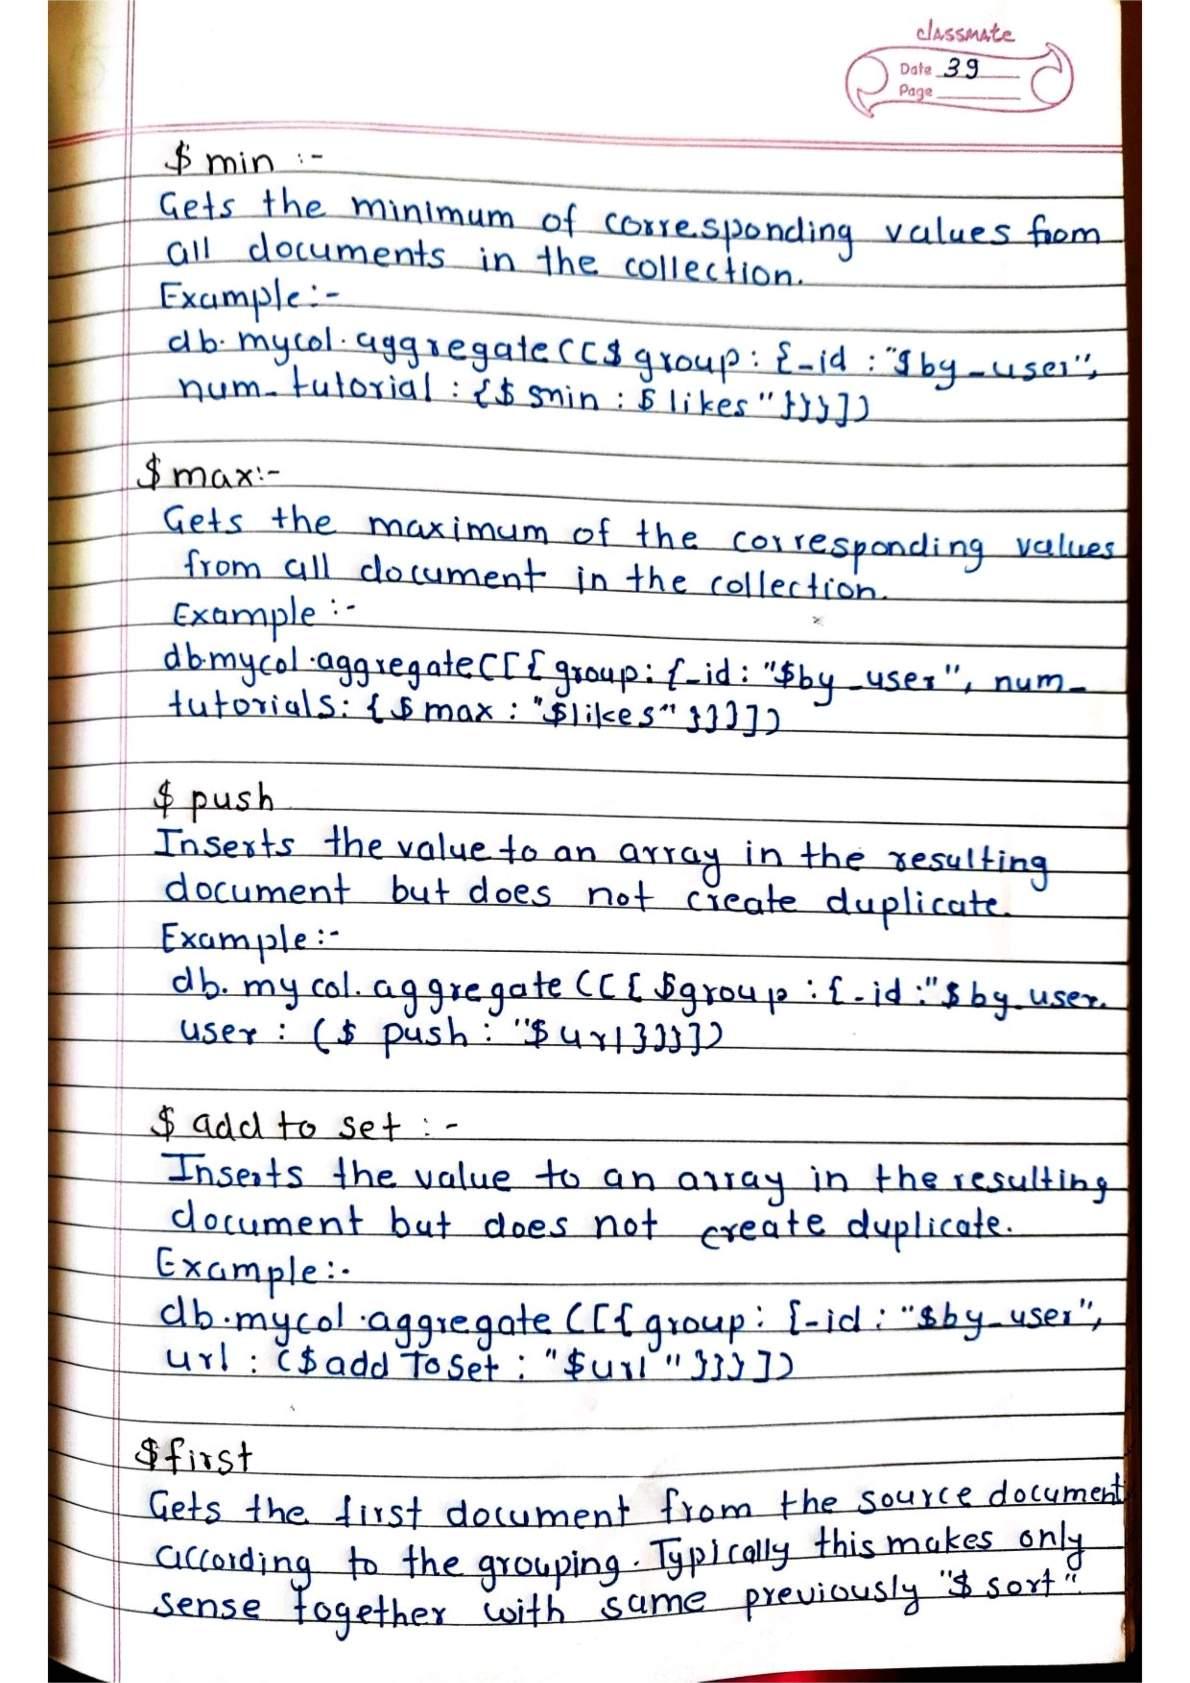 classmate
Date 39
Page
$ min :-
Gets the minimum of corresponding values from
all documents in the collection.
Example:-
db.mycol.aggregate([$ group: {_id : "$by_user",
num_tutorial : {$ min : $ likes"}}}])
$ max:-
Gets the maximum of the corresponding values
from all document in the collection.
Example :-
db.mycol.aggregate([{ group: {_id : "$by_user", num_
tutorials: {$ max : "$likes" }}}])
$ push
Inserts the value to an array in the resulting
document but does not create duplicate.
Example:-
db.mycol.aggregate([{ $group : {_id :"$ by_user.
user : ($ push : "$ url}}}])
$ add to set : -
Inserts the value to an array in the resulting
document but does not create duplicate.
Example:-
db.mycol.aggregate([{ group: {_id : "$by_user",
url : ($ add To Set : "$url" }}}])
$first
Gets the first document from the source document
according to the grouping. Typically this makes only
sense together with same previously "$ sort"